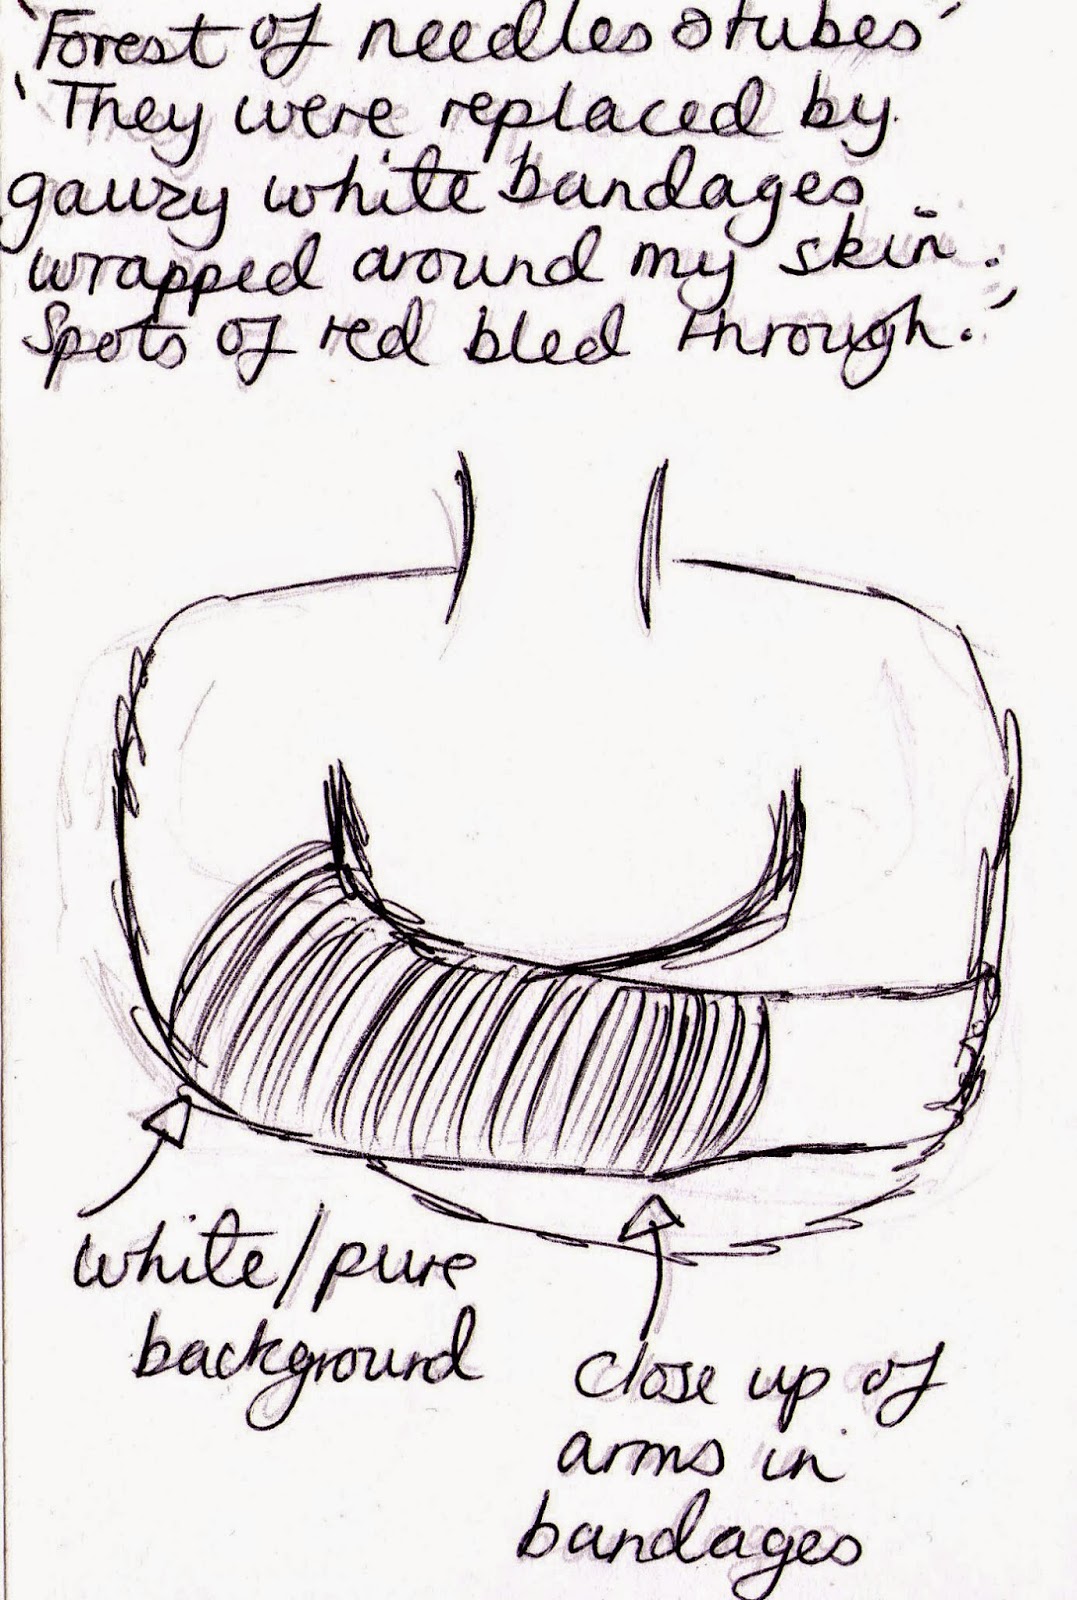 'Forest of needles & tubes'
'They were replaced by
gauzy white bandages
wrapped around my skin.
Spots of red bled through.'
white/pure
background
close up of
arms in
bandages